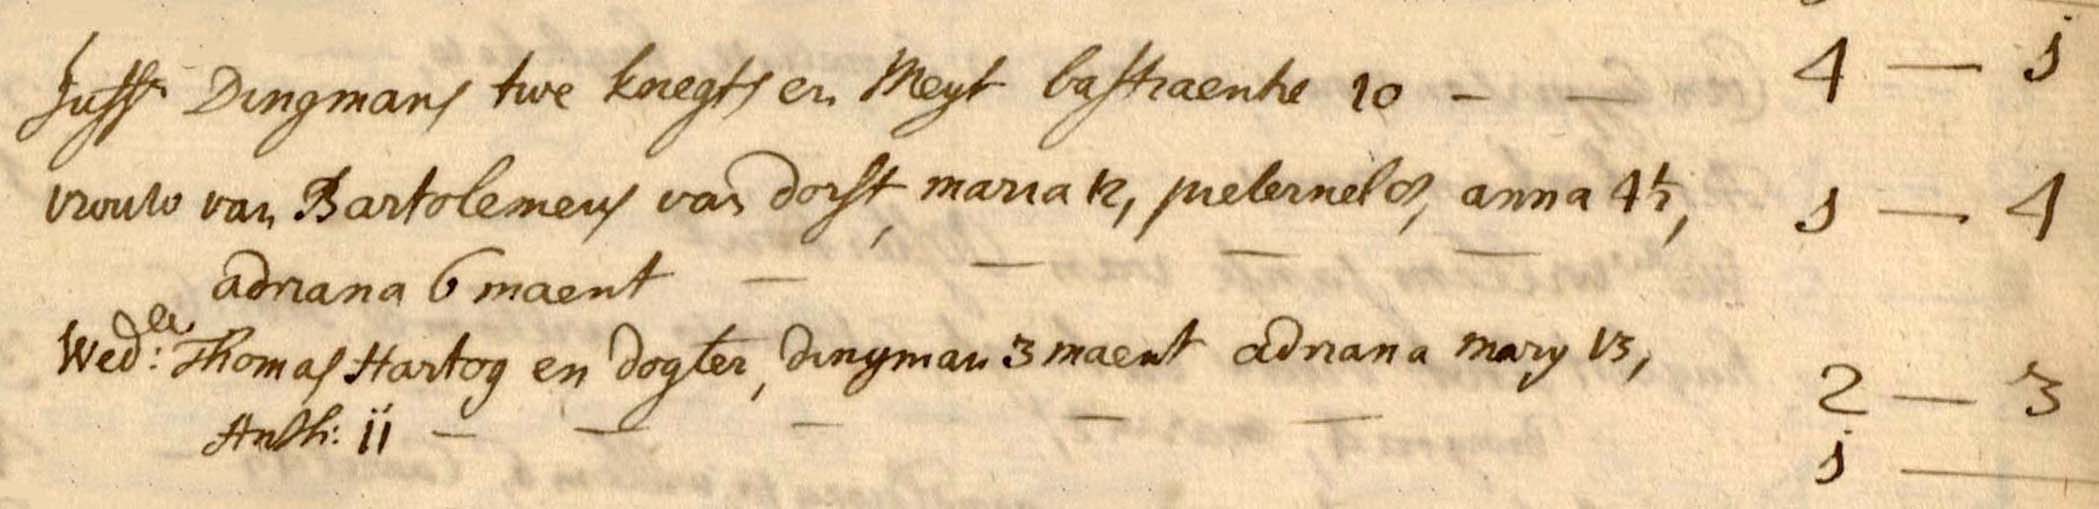 Juffr Dingmans twe knegts en Meyt bastiaenke 10 - — 4 — 1
vrouw van Bartolemeus van dorst, maria 12, pieternel 8, anna 4½, 1 — 4
adriana 6 maent — — — —
Wed:e Thomas Hartog en dogter, dingman 3 maent adriana mary 13, 2 — 3
Anth: ii — — — — —
1 —